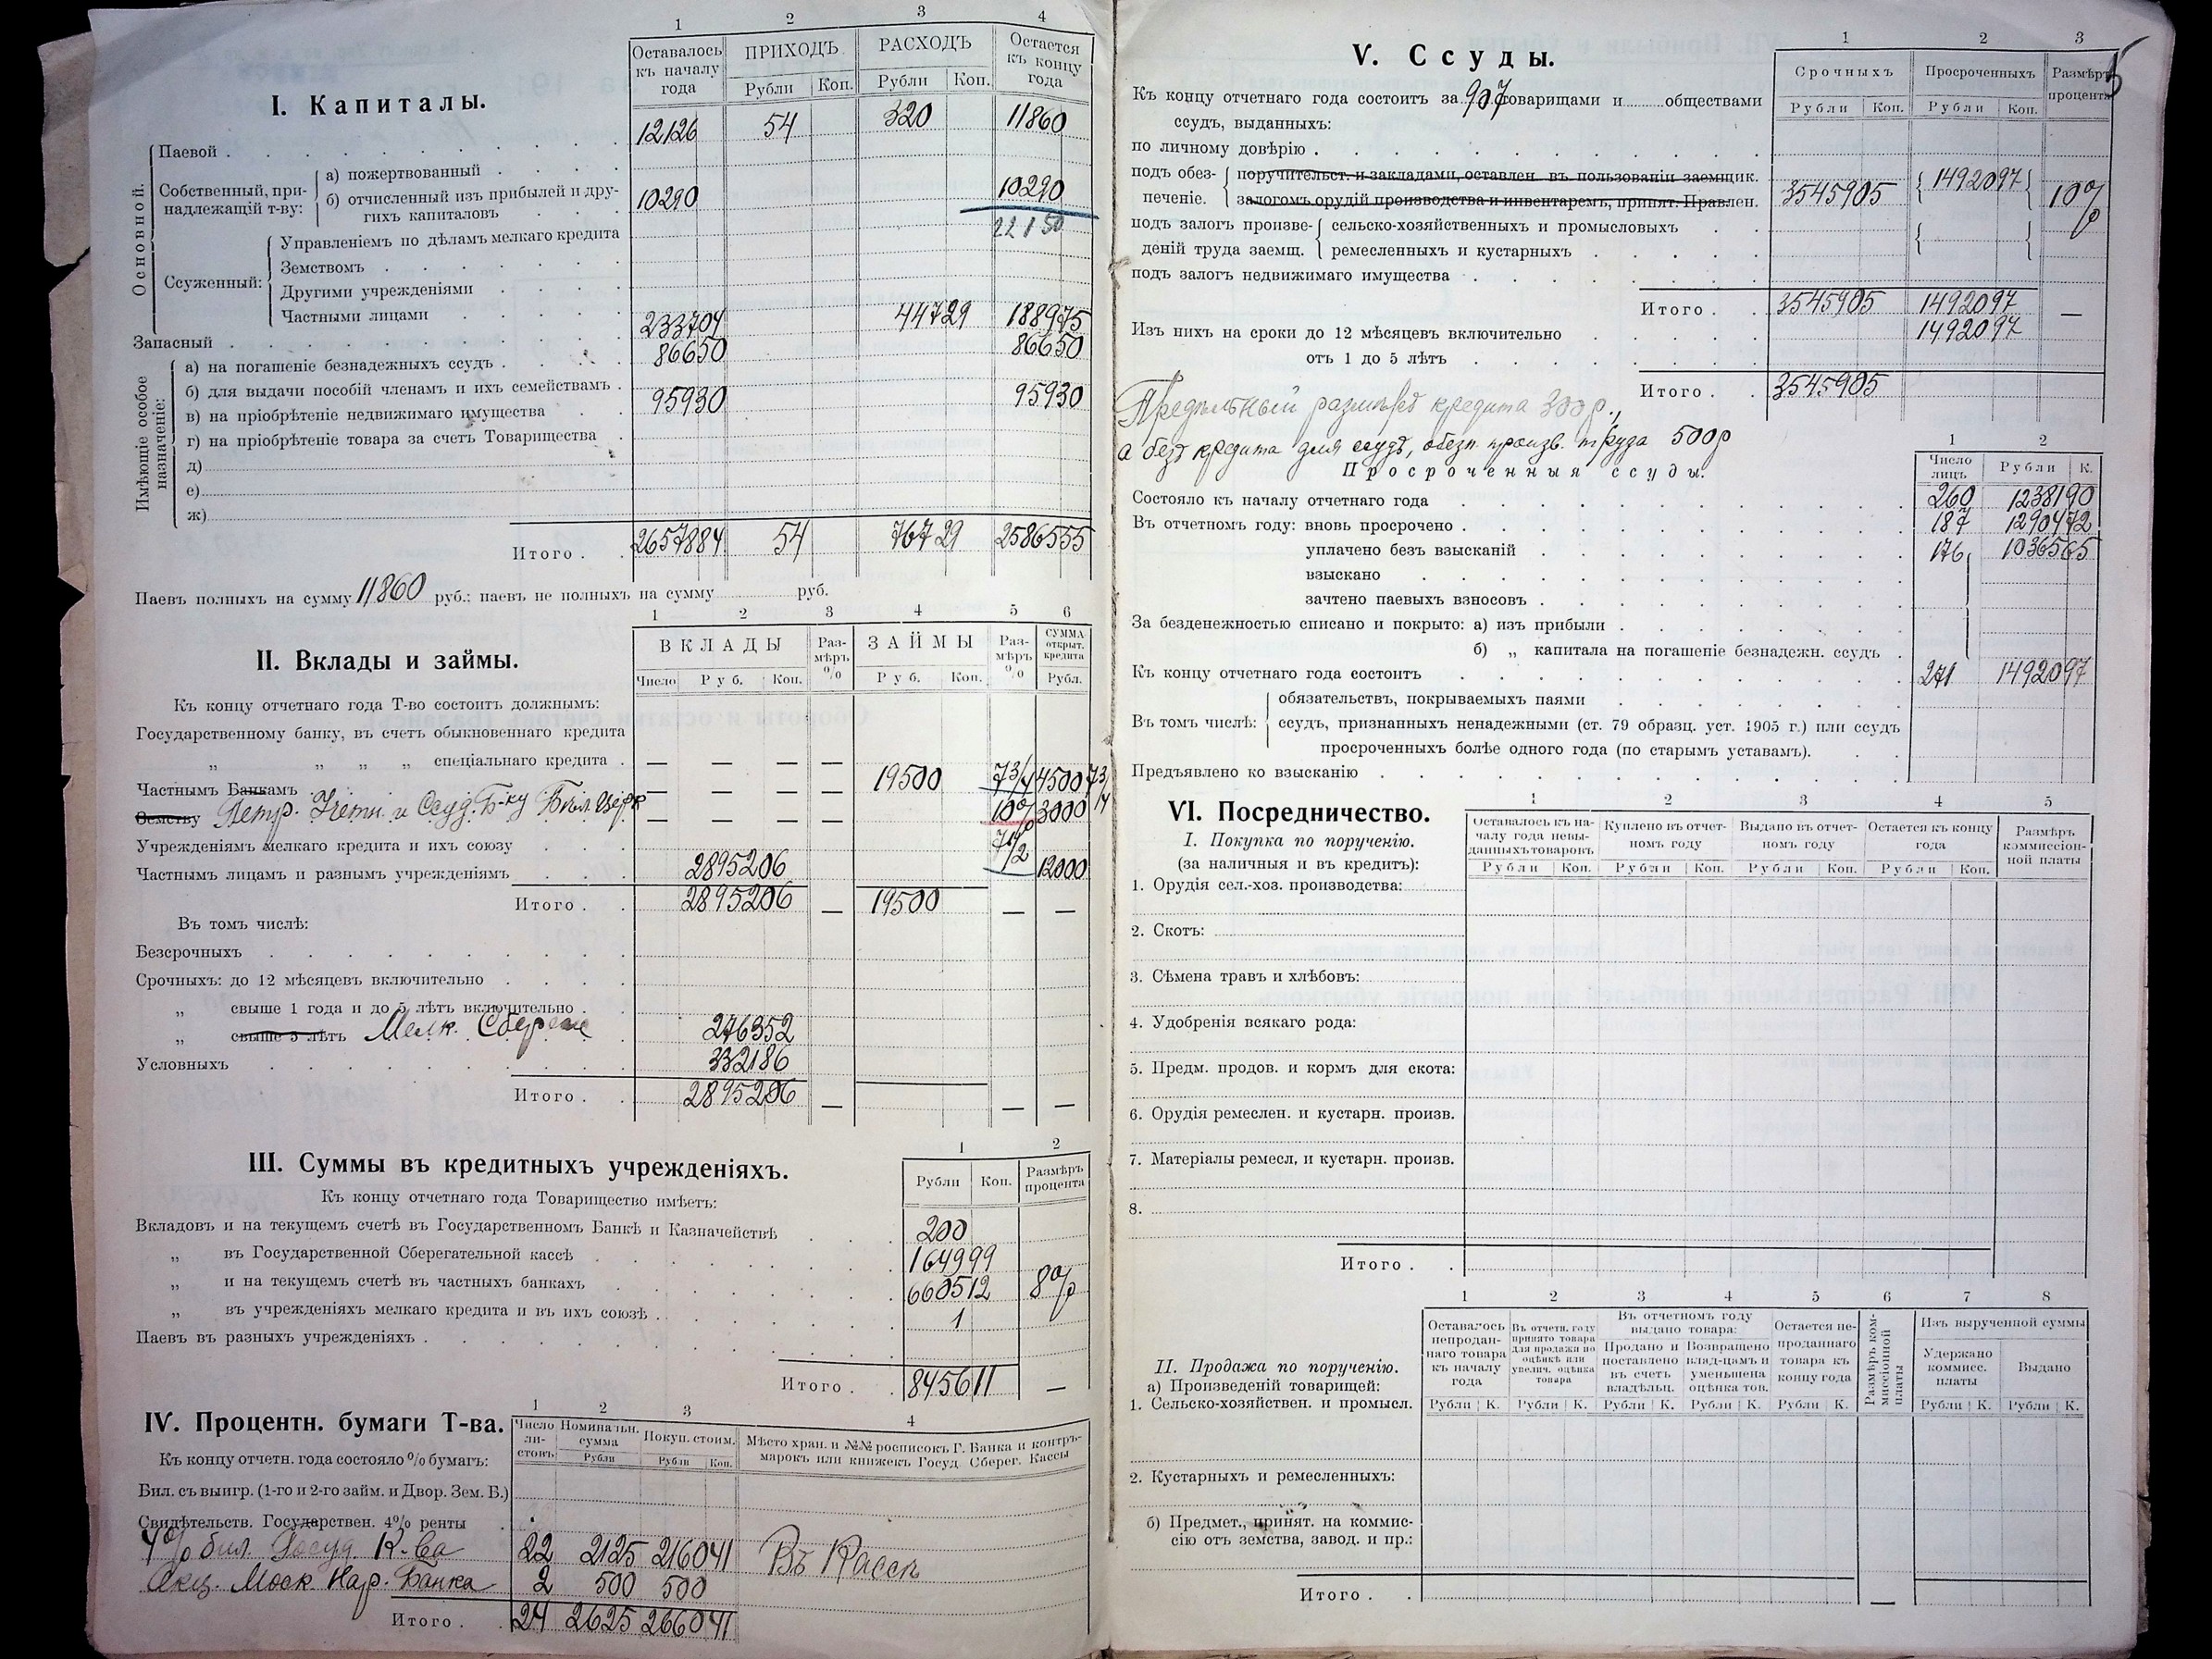 1 2 3 4
Оставалось къ началу года ПРИХОДЪ РАСХОДЪ Остается къ концу года
Рубли Коп. Рубли Коп.
I. Капиталы.
Основной.
Паевой 12126 54 320 11860
Собственный, принадлежащій т-ву:
а) пожертвованный
б) отчисленный изъ прибылей и другихъ капиталовъ 10290 10290
22150
Ссуженный:
Управленіемъ по дѣламъ мелкаго кредита
Земствомъ
Другими учрежденіями
Частными лицами
Запасный 233704 44729 188975
Имѣющіе особое назначеніе:
а) на погашеніе безнадежныхъ ссудъ 86650 86650
б) для выдачи пособій членамъ и ихъ семействамъ
в) на пріобрѣтеніе недвижимаго имущества 95930 95930
г) на пріобрѣтеніе товара за счетъ Товарищества
д)
е)
ж)
Итого 2657884 54 76729 2586555
Паевъ полныхъ на сумму 11860 руб.; паевъ не полныхъ на сумму руб.
1 2 3 4 5 6
II. Вклады и займы.
ВКЛАДЫ Размѣръ % ЗАЙМЫ Размѣръ % СУММА открыт. кредита
Число Руб. Коп. Руб. Коп. Рубл.
Къ концу отчетнаго года Т-во состоитъ должнымъ:
Государственному банку, въ счетъ обыкновеннаго кредита
„ „ „ „ спеціальнаго кредита — — — —
Частнымъ Банкамъ — — — — 19500 7 3/4 4500 7 3/4
Земству Петр. Учетн. и Ссуд. Б-ку — — — — 10% 3000
Учрежденіямъ мелкаго кредита и ихъ союзу 7 1/2
Частнымъ лицамъ и разнымъ учрежденіямъ 2895206 12000
Итого 2895206 — 19500 — —
Въ томъ числѣ:
Безсрочныхъ
Срочныхъ: до 12 мѣсяцевъ включительно
„ свыше 1 года и до 5 лѣтъ включительно
„ свыше 5 лѣтъ Мелк. Сбереж 276352
Условныхъ 332186
Итого 2895206 — — —
III. Суммы въ кредитныхъ учрежденіяхъ.
1 2
Рубли Коп. Размѣръ процента
Къ концу отчетнаго года Товарищество имѣетъ:
Вкладовъ и на текущемъ счетѣ въ Государственномъ Банкѣ и Казначействѣ 200
„ въ Государственной Сберегательной кассѣ 164999
„ и на текущемъ счетѣ въ частныхъ банкахъ 660512 8%
„ въ учрежденіяхъ мелкаго кредита и въ ихъ союзѣ 1
Паевъ въ разныхъ учрежденіяхъ
Итого 845611 —
IV. Процентн. бумаги Т-ва.
1 2 3 4
Число листовъ Номинальн. сумма Покуп. стоим. Мѣсто хран. и №№ росписокъ Г. Банка и контръ-марокъ или книжекъ Госуд. Сберег. Кассы
Рубли Рубли Коп.
Къ концу отчетн. года состояло % бумагъ:
Бил. съ выигр. (1-го и 2-го займ. и Двор. Зем. Б.)
Свидѣтельств. Государствен. 4% ренты
4% бил. Госуд. К-ва 22 2125 216041 Въ Кассѣ
Акц. Моск. Нар. Банка 2 500 500
Итого 24 2625 266041
5
V. Ссуды.
1 2 3
Срочныхъ Просроченныхъ Размѣръ процента
Рубли Коп. Рубли Коп.
Къ концу отчетнаго года состоитъ за 907 товарищами и обществами
ссудъ, выданныхъ:
по личному довѣрію
подъ обезпеченіе.
поручительст. и закладами, оставлен. въ пользованіи заемщик. 3545905 1492097 10%
залогомъ орудій производства и инвентаремъ, принят. Правлен.
подъ залогъ произведеній труда заемщ.
сельско-хозяйственныхъ и промысловыхъ
ремесленныхъ и кустарныхъ
подъ залогъ недвижимаго имущества
Итого 3545905 1492097 —
Изъ нихъ на сроки до 12 мѣсяцевъ включительно 1492097
отъ 1 до 5 лѣтъ
Итого 3545905
Предѣльный размѣръ кредита 300р.,
а безъ кредита для ссудъ, обезп. произв. труда 500р
Просроченныя ссуды.
1 2
Число лицъ Рубли К.
Состояло къ началу отчетнаго года 260 1238190
Въ отчетномъ году: вновь просрочено 187 1290472
уплачено безъ взысканій 176 1036565
взыскано
зачтено паевыхъ взносовъ
За безденежностью списано и покрыто: а) изъ прибыли
б) „ капитала на погашеніе безнадежн. ссудъ
Къ концу отчетнаго года состоитъ 271 1492097
Въ томъ числѣ:
обязательствъ, покрываемыхъ паями
ссудъ, признанныхъ ненадежными (ст. 79 образц. уст. 1905 г.) или ссудъ
просроченныхъ болѣе одного года (по старымъ уставамъ).
Предъявлено ко взысканію
VI. Посредничество.
1 2 3 4 5
I. Покупка по порученію.
(за наличныя и въ кредитъ):
Оставалось къ началу года невыданныхъ товаровъ Куплено въ отчетномъ году Выдано въ отчетномъ году Остается къ концу года Размѣръ коммиссіонной платы
Рубли Коп. Рубли Коп. Рубли Коп. Рубли Коп.
1. Орудія сел.-хоз. производства:
2. Скотъ:
3. Сѣмена травъ и хлѣбовъ:
4. Удобренія всякаго рода:
5. Предм. продов. и кормъ для скота:
6. Орудія ремеслен. и кустарн. произв.
7. Матеріалы ремесл. и кустарн. произв.
8.
Итого
1 2 3 4 5 6 7 8
Оставалось непроданнаго товара къ началу года
Въ отчетн. году принято товара для продажи по оцѣнкѣ или увелич. оцѣнка товара
Въ отчетномъ году выдано товара:
Продано и поставлено въ счетъ владѣльц.
Возвращено влад-цамъ и уменьшена оцѣнка тов.
Остается непроданнаго товара къ концу года
Размѣръ коммиссіонной платы
Изъ вырученной суммы
Удержано коммисс. платы
Выдано
II. Продажа по порученію.
а) Произведеній товарищей:
1. Сельско-хозяйствен. и промысл. Рубли К. Рубли К. Рубли К. Рубли К. Рубли К. Рубли К. Рубли К.
2. Кустарныхъ и ремесленныхъ:
б) Предмет., принят. на коммиссію отъ земства, завод. и пр.:
Итого —